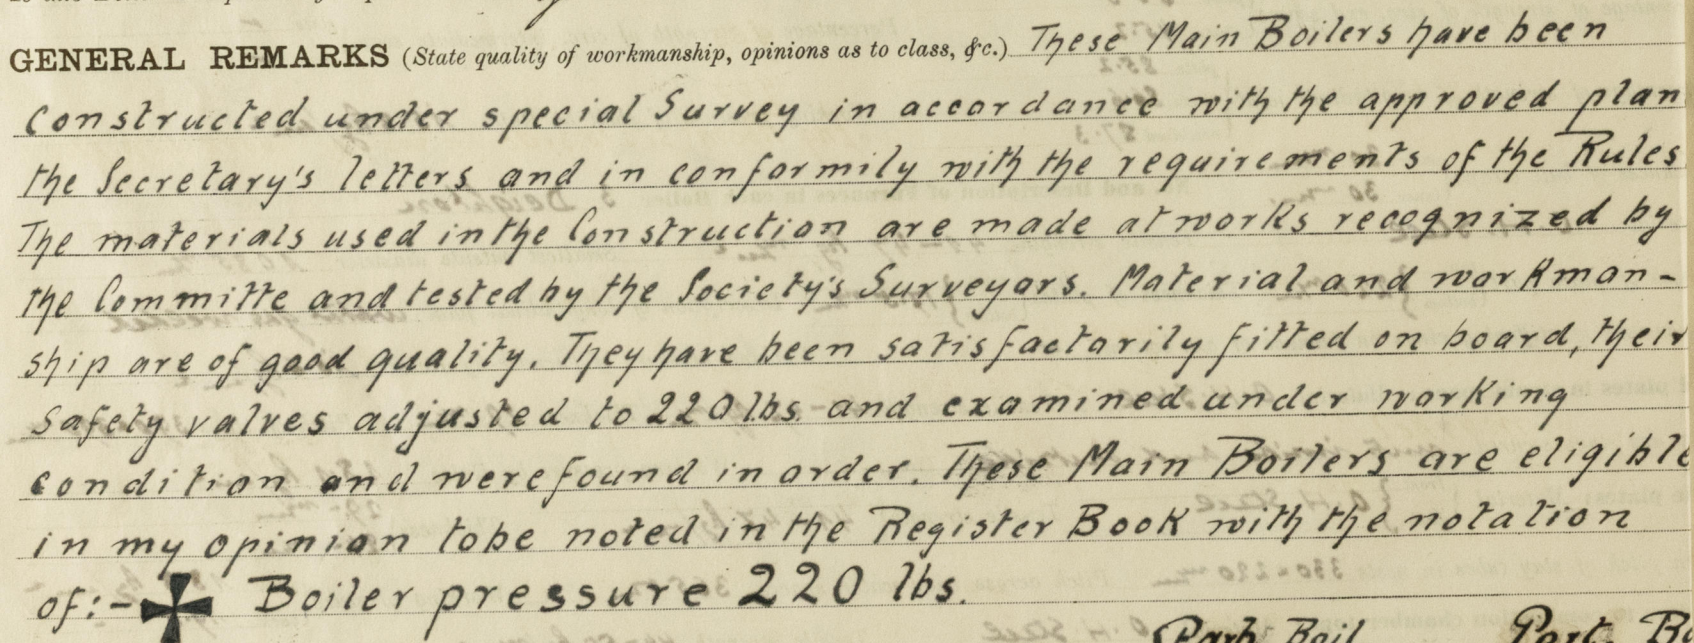 GENERAL REMARKS (State quality of workmanship, opinions as to class, &c.) These Main Boilers have been
Constructed under special Survey in accordance with the approved plan
the Secretary's letters and in conformily with the requirements of the Rules
The materials used in the Construction are made at works recognized by
the Committe and tested by the Society's Surveyors. Material and workman-
ship are of good quality. They have been satisfactorily fitted on board, their
Safety valves adjusted to 220 lbs and examined under working
condition and were found in order. These Main Boilers are eligible
in my opinion to be noted in the Register Book with the notation
of:- ✠ Boiler pressure 220 lbs.